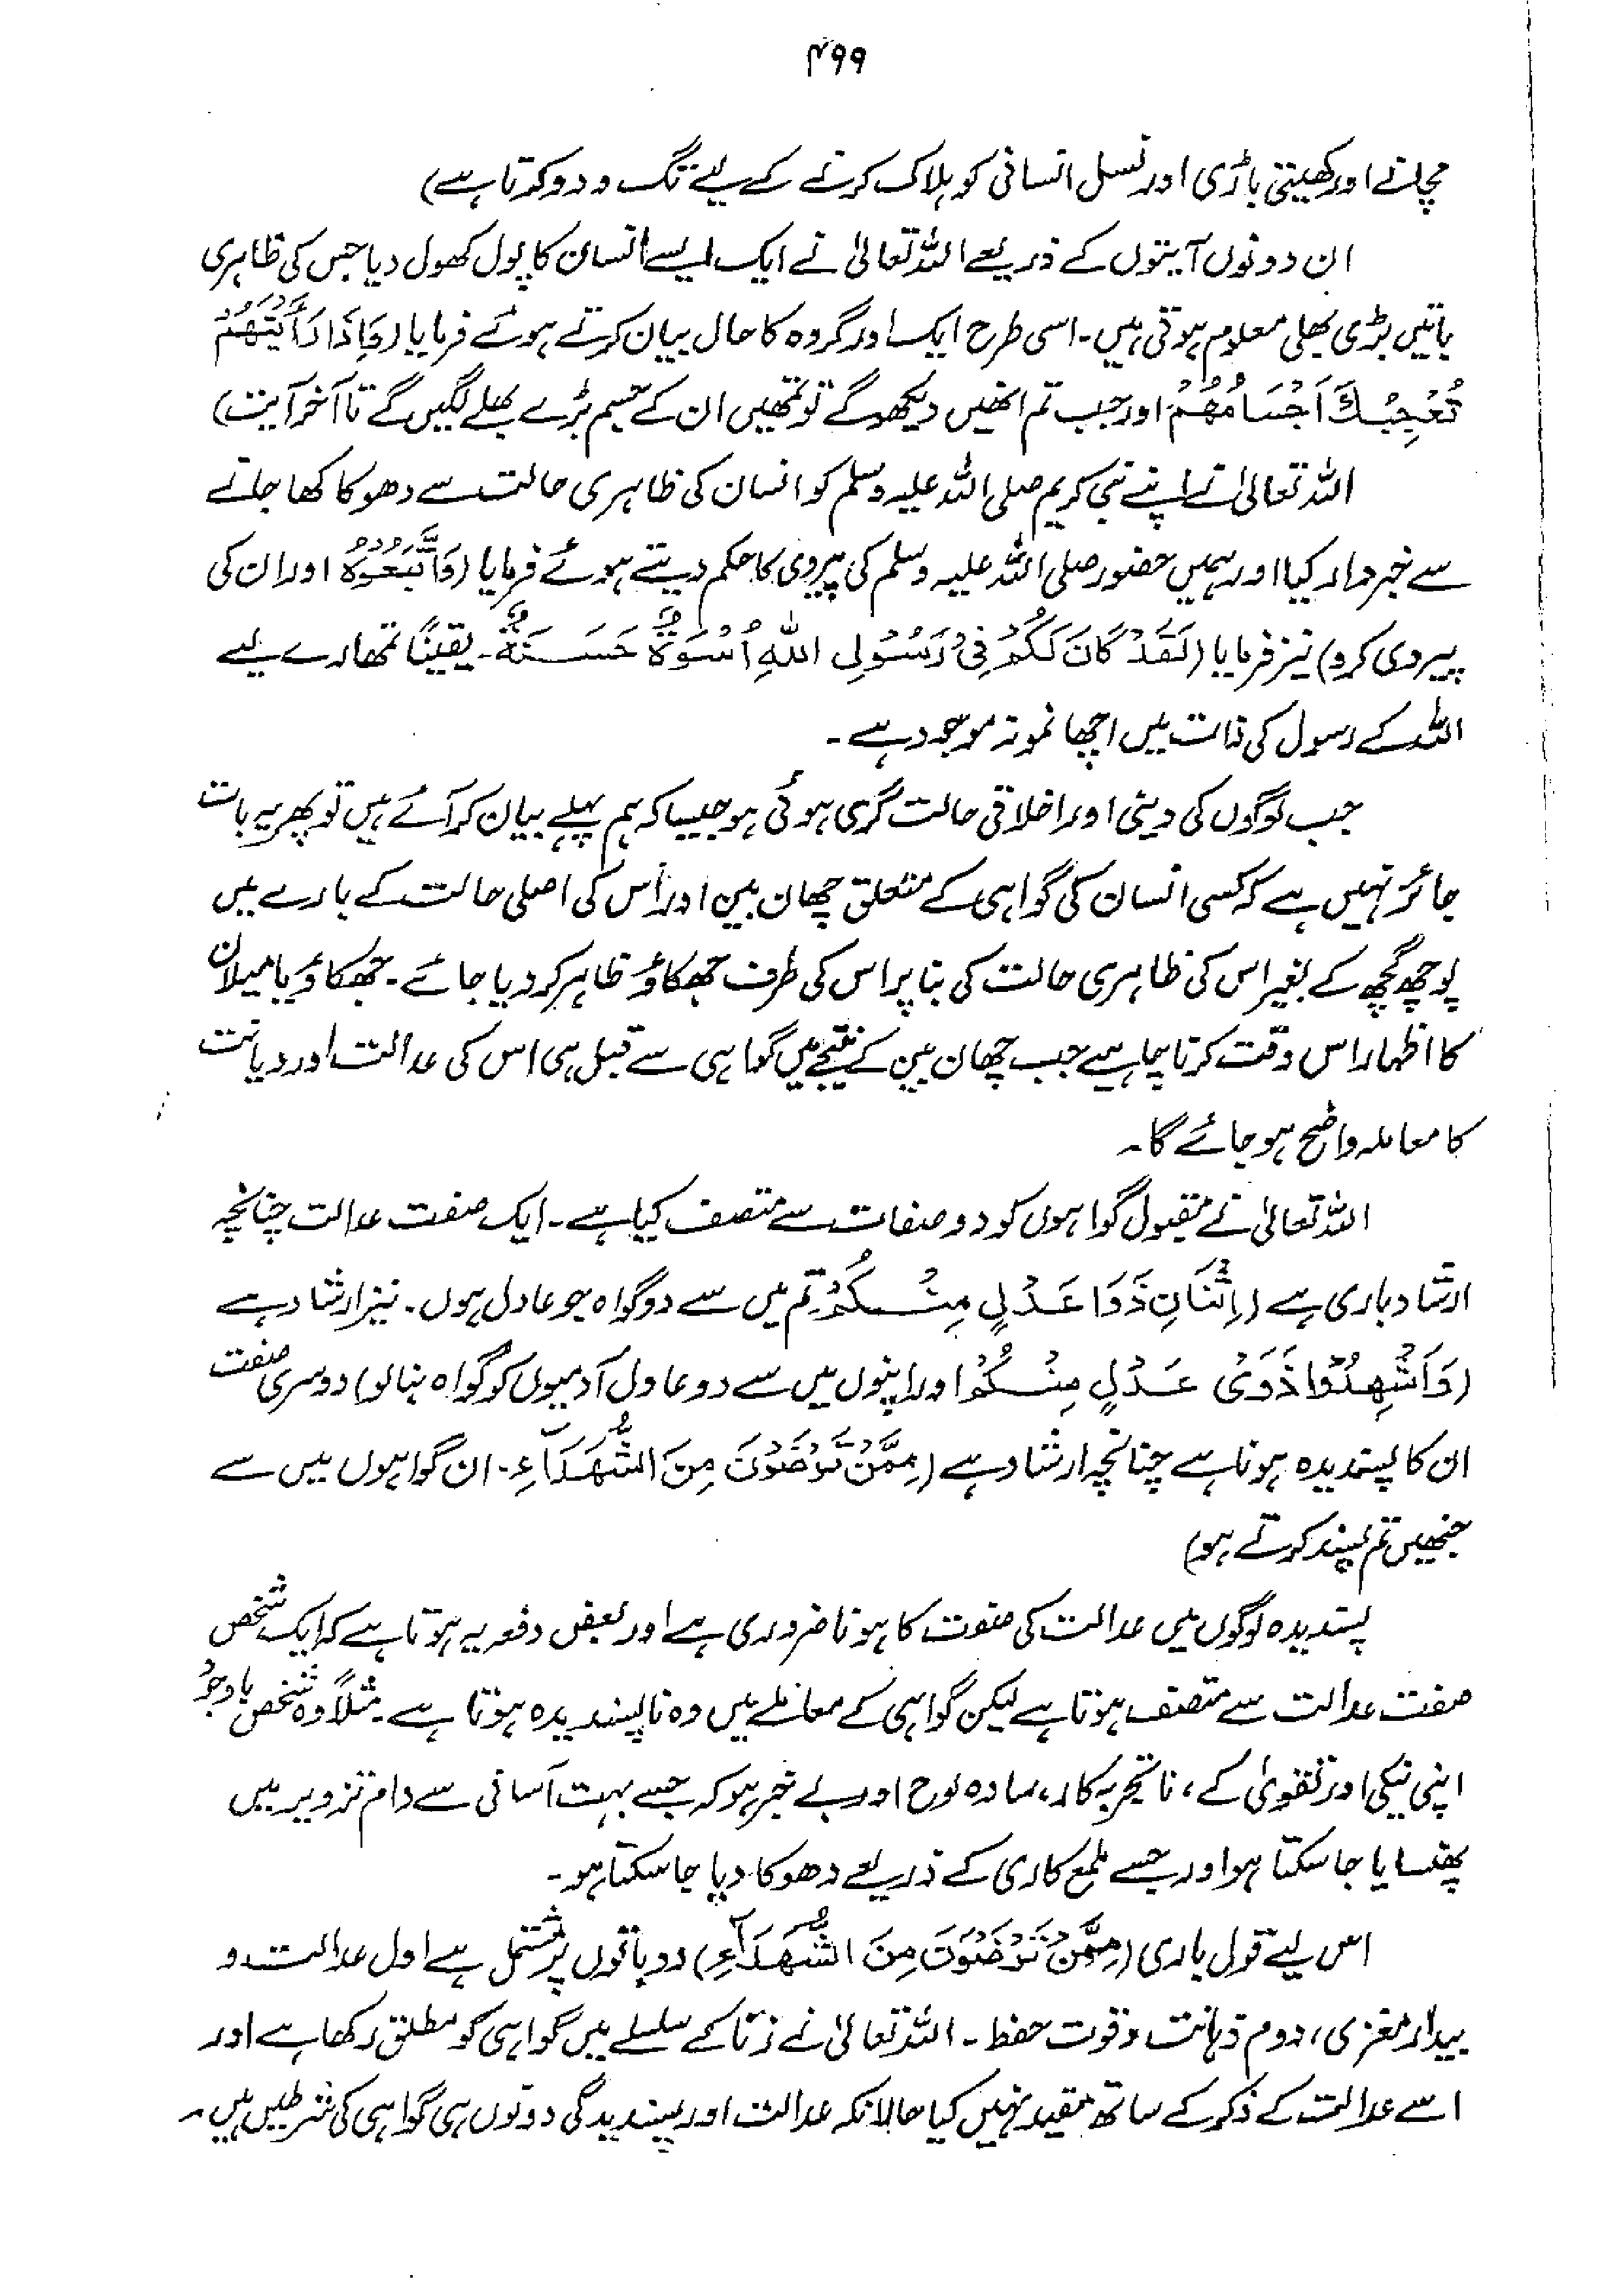 ۴۹۹
مچانے اور کھیتی باڑی اور نسل انسانی کو ہلاک کرنے کے لیے تگ و دو کرتا ہے)
ان دونوں آیتوں کے ذریعے اللہ تعالیٰ نے ایک ایسے انسان کا پول کھول دیا جس کی ظاہری
باتیں بڑی بھلی معلوم ہوتی ہیں۔ اسی طرح ایک اور گروہ کا حال بیان کرتے ہوئے فرمایا (وَاِذَا رَاَيْتَهُمْ
تُعْجِبُكَ اَجْسَامُهُمْ اور جب تم انھیں دیکھو گے تو تمھیں ان کے جسم بڑے بھلے لگیں گے تا آخر آیت)
اللہ تعالیٰ نے اپنے نبی کریم صلی اللہ علیہ وسلم کو انسان کی ظاہری حالت سے دھوکا کھا جانے
سے خبردار کیا اور ہمیں حضور صلی اللہ علیہ وسلم کی پیروی کا حکم دیتے ہوئے فرمایا (وَاتَّبِعُوْهُ اور ان کی
پیروی کرو) نیز فرمایا (لَقَدْ كَانَ لَكُمْ فِىْ رَسُوْلِ اللهِ اُسْوَةٌ حَسَنَةٌ۔ یقینًا تمھارے لیے
اللہ کے رسول کی ذات میں اچھا نمونہ موجود ہے۔
جب لوگوں کی دینی اور اخلاقی حالت گری ہوئی ہو جیسا کہ ہم پہلے بیان کر آئے ہیں تو پھر یہ بات
جائز نہیں ہے کہ کسی انسان کی گواہی کے متعلق چھان بین اور اس کی اصلی حالت کے بارے میں
پوچھ گچھ کے بغیر اس کی ظاہری حالت کی بنا پر اس کی طرف جھکاؤ ظاہر کر دیا جائے۔ جھکاؤ یا میلان
کا اظہار اس وقت کرنا چاہیے جب چھان بین کے نتیجے میں گواہی سے قبل ہی اس کی عدالت اور دیانت
کا معاملہ واضح ہو جائے گا۔
اللہ تعالیٰ نے مقبول گواہوں کو دو صفات سے متصف کیا ہے۔ ایک صفت عدالت چنانچہ
ارشاد باری ہے (اِثْنَانِ ذَوَا عَدْلٍ مِنْكُمْ تم میں سے دو گواہ جو عادل ہوں۔ نیز ارشاد ہے
(وَاَشْهِدُوْا ذَوَىْ عَدْلٍ مِنْكُمْ اور اپنوں میں سے دو عادل آدمیوں کو گواہ بنا لو) دوسری صفت
ان کا پسندیدہ ہونا ہے چنانچہ ارشاد ہے (مِمَّنْ تَرْضَوْنَ مِنَ الشُّهَدَآءِ۔ ان گواہوں میں سے
جنھیں تم پسند کرتے ہو)
پسندیدہ لوگوں میں عدالت کی صفت کا ہونا ضروری ہے اور بعض دفعہ یہ ہوتا ہے کہ ایک شخص
صفت عدالت سے متصف ہوتا ہے لیکن گواہی کے معاملے میں وہ ناپسندیدہ ہوتا ہے۔ مثلًا وہ شخص باوجود
اپنی نیکی اور تقویٰ کے، ناتجربہ کار، سادہ لوح اور بے خبر ہو کہ جسے بہت آسانی سے دام تزویر میں
پھنسایا جا سکتا ہو اور جسے ملمع کاری کے ذریعے دھوکا دیا جا سکتا ہو۔
اس لیے قول باری (مِمَّنْ تَرْضَوْنَ مِنَ الشُّهَدَآءِ) دو باتوں پر مشتمل ہے اول عدالت و
بیدار مغزی، دوم ذہانت و قوت حفظ۔ اللہ تعالیٰ نے زنا کے سلسلے میں گواہی کو مطلق رکھا ہے اور
اسے عدالت کے ذکر کے ساتھ مقید نہیں کیا حالانکہ عدالت اور پسندیدگی دونوں ہی گواہی کی شرطیں ہیں۔